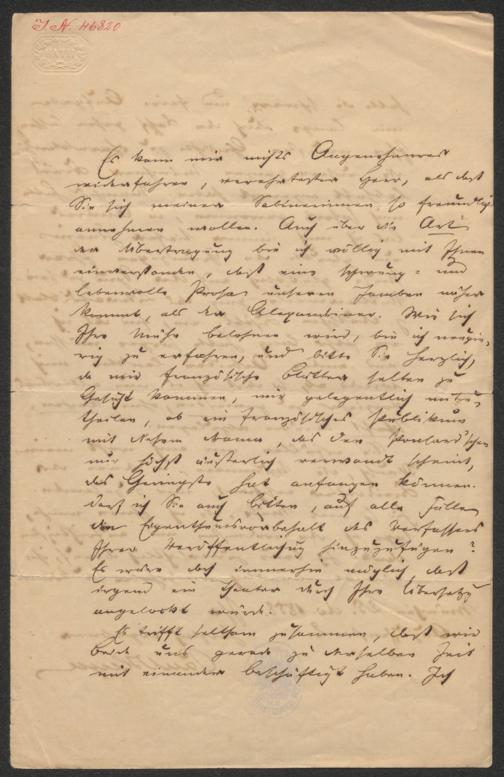 I. N. 46820
Es kann mir nichts Angenehmeres
widerfahren, verehrtester Herr, als daß
Sie sich meiner Sabinerinnen so freundlich
annehmen wollen. Auch über die Art
der Übertragung bin ich völlig mit Ihnen
einverstanden, daß eine schwung- und
lebenvolle Prosa unseren Jamben näher
kommt, als der Alexandriner. Wie sich
Ihre Mühe belohnen wird, bin ich neugie-
rig zu erfahren, und bitte Sie herzlich,
da mir französische Blätter selten zu
Gesicht kommen, mir gelegentlich mitzu-
theilen, ob ein französisches Publikum
mit diesem Drama, das den
nur höchst äußerlich verwandt scheint,
das Geringste hat anfangen können.
Darf ich Sie auch bitten, auf alle Fälle
den Eigenthumsvorbehalt des Verfassers
Ihrer Veröffentlichung hinzuzufügen?
Es wäre doch immerhin möglich, daß
irgend ein Theater durch Ihre Übersetzg
angelockt würde.
Es trifft seltsam zusammen, daß wir
beide uns gerade zu derselben Zeit
mit einander beschäftigt haben. Ich